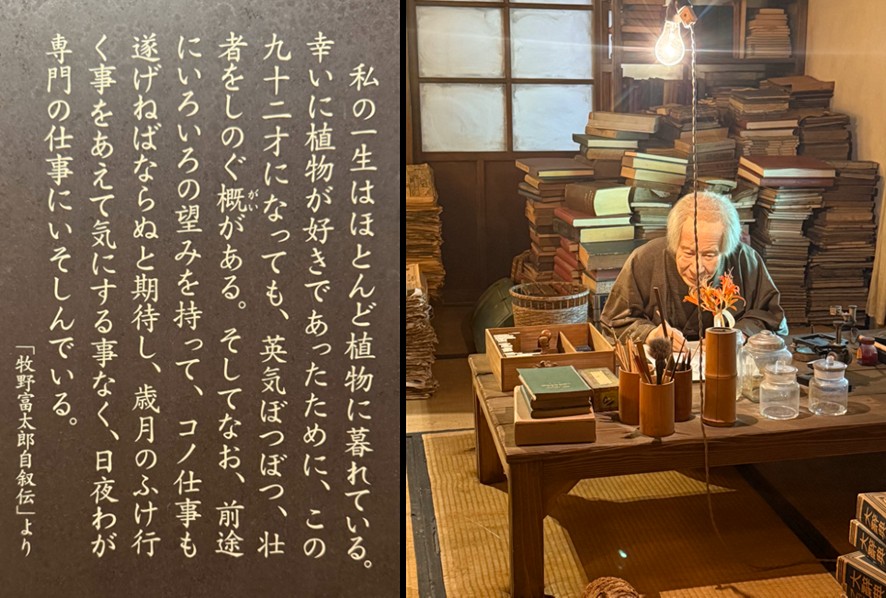 私の一生はほとんど植物に暮れている。
幸いに植物が好きであったために、この
九十二才になっても、英気ぼつぼつ、壮
者をしのぐ概がある。そしてなお、前途
がい
にいろいろの望みを持って、コノ仕事も
遂げねばならぬと期待し、歳月のふけ行
く事をあえて気にする事なく、日夜わが
専門の仕事にいそしんでいる。
「牧野富太郎自叙伝」より